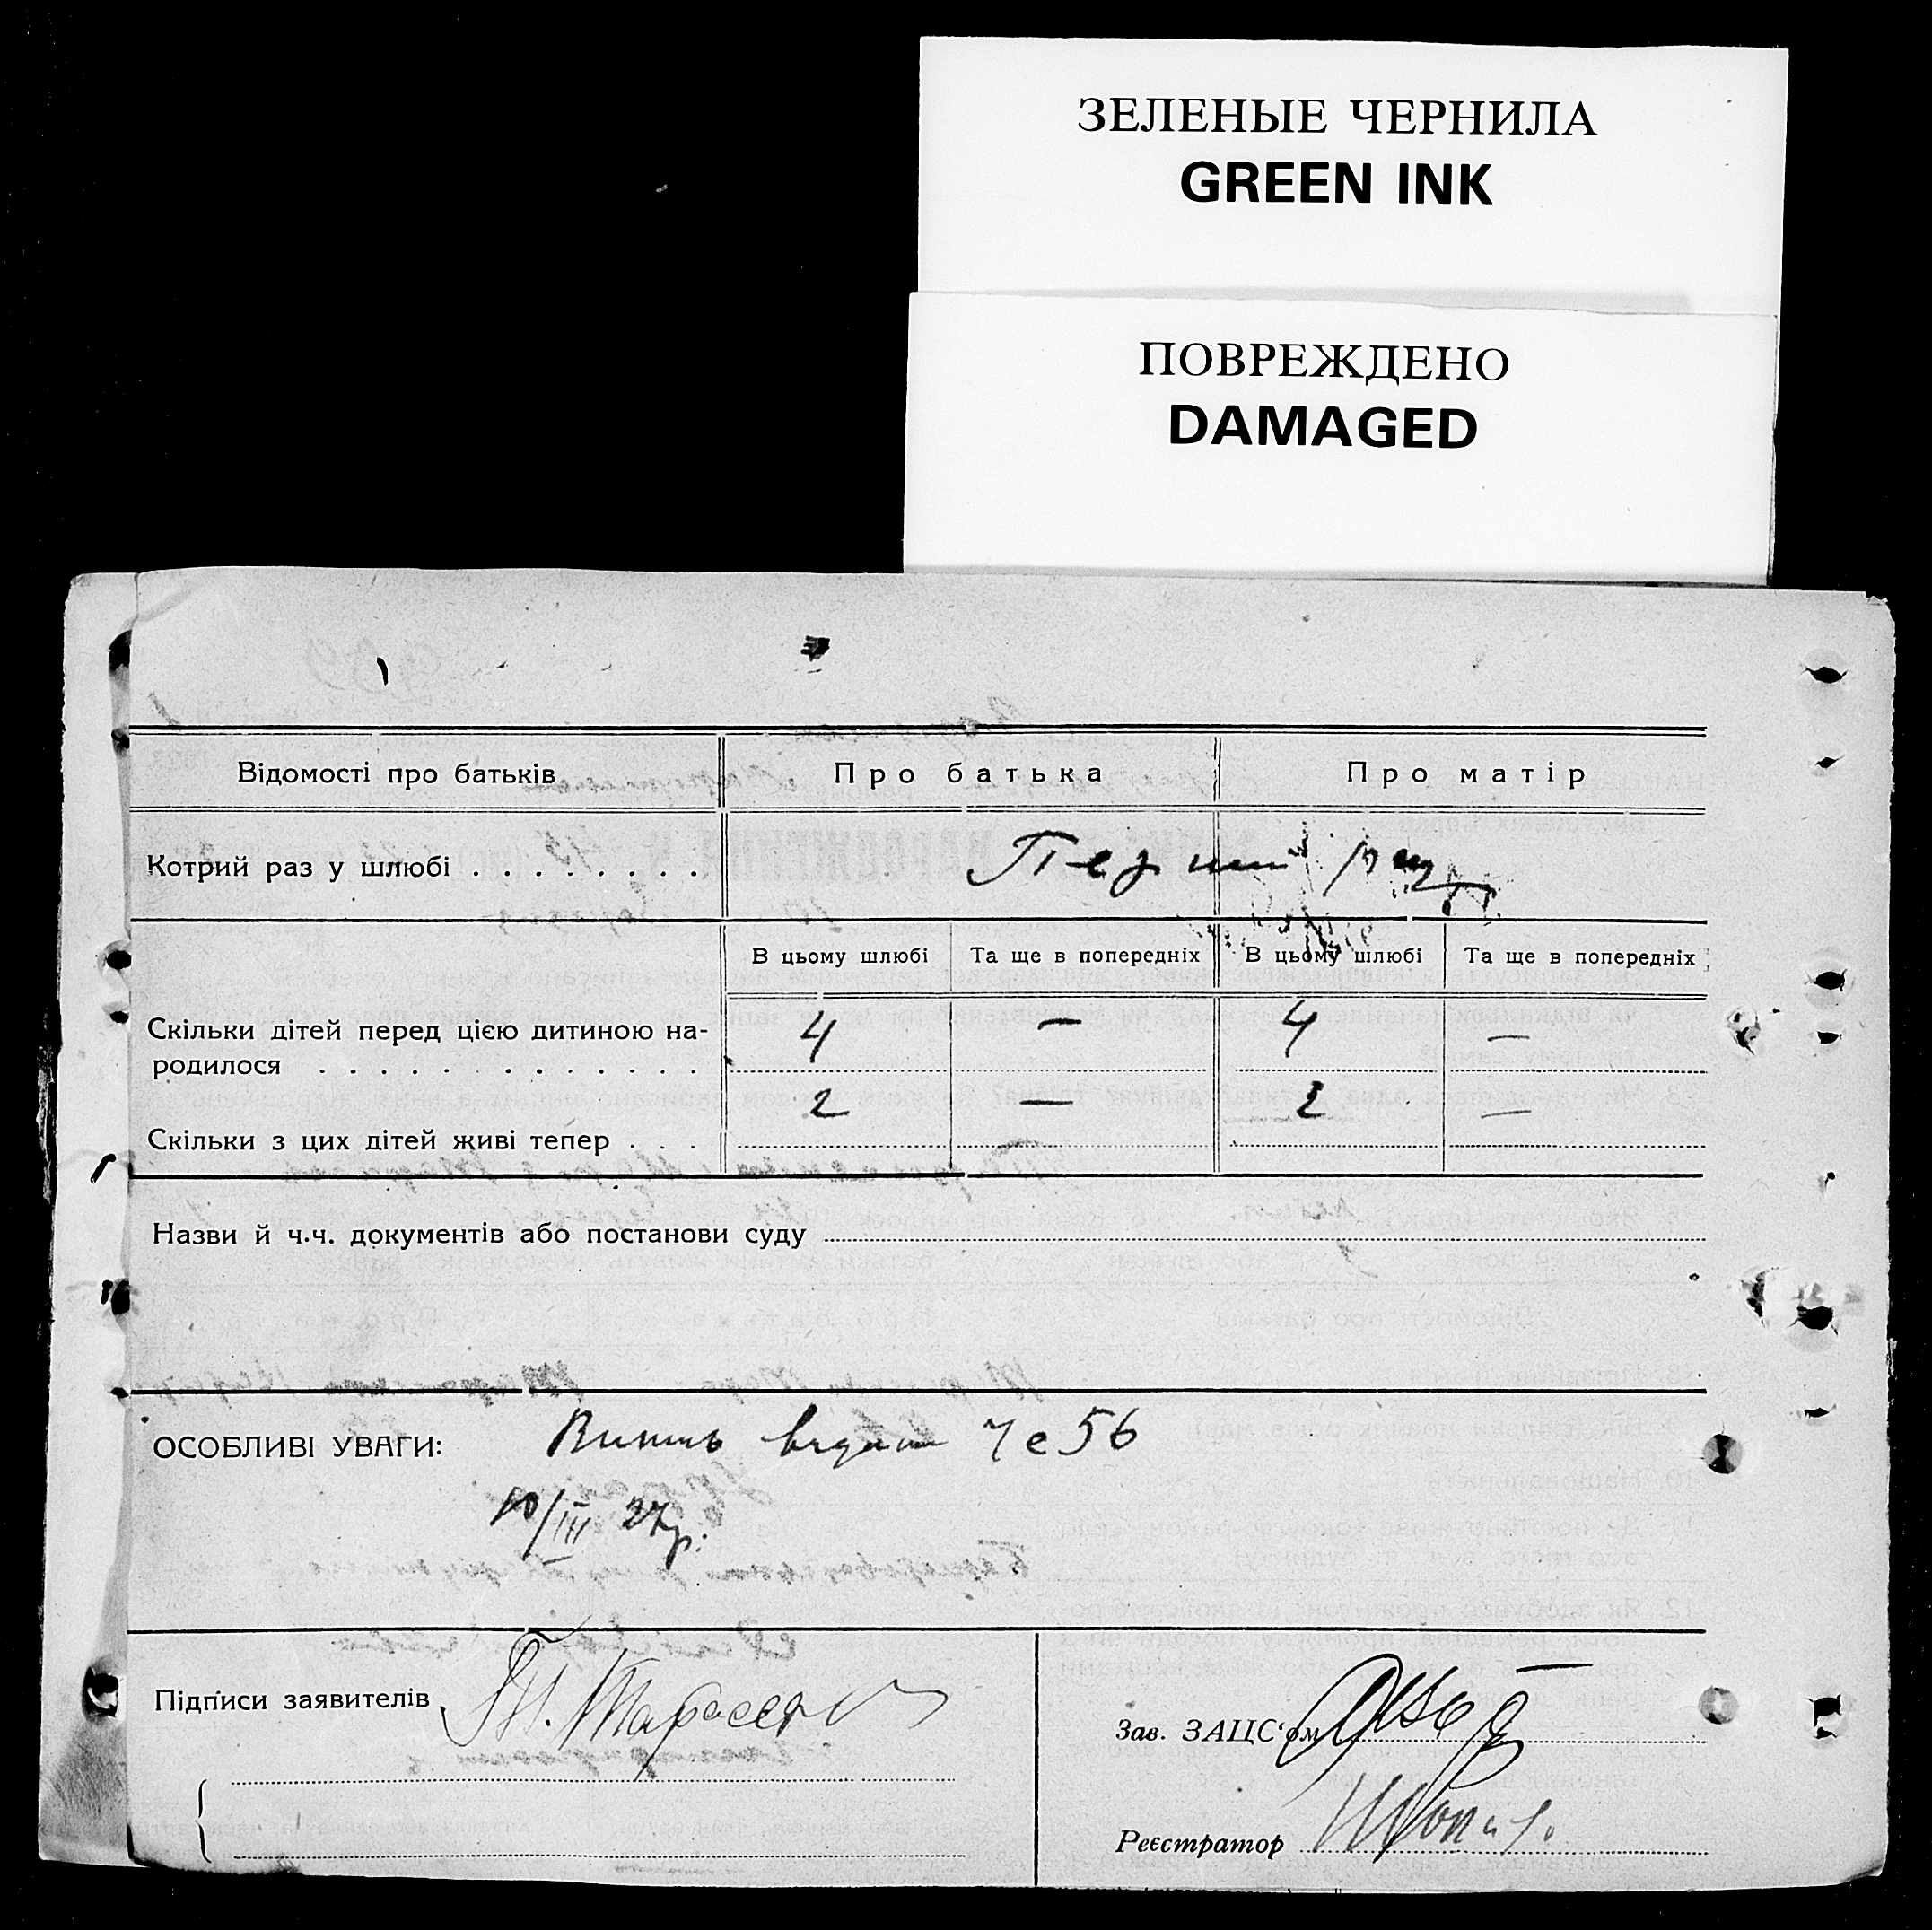 ЗЕЛЕНЫЕ ЧЕРНИЛА
GREEN INK
ПОВРЕЖДЕНО
DAMAGED
Відомості про батьків Про батька Про матір
Котрий раз у шлюбі . . . . . . . . Перший раз
В цьому шлюбі Та ще в попередніх В цьому шлюбі Та ще в попередніх
Скільки дітей перед цією дитиною на-
родилося . . . . . . . . . . . . . 4 — 4 —
Скільки з цих дітей живі тепер . . . 2 — 2 —
Назви й ч.ч. документів або постанови суду
ОСОБЛИВІ УВАГИ: 56
10/III 27р.
Підписи заявителів
Зав. ЗАЦС‘ом
Реєстратор